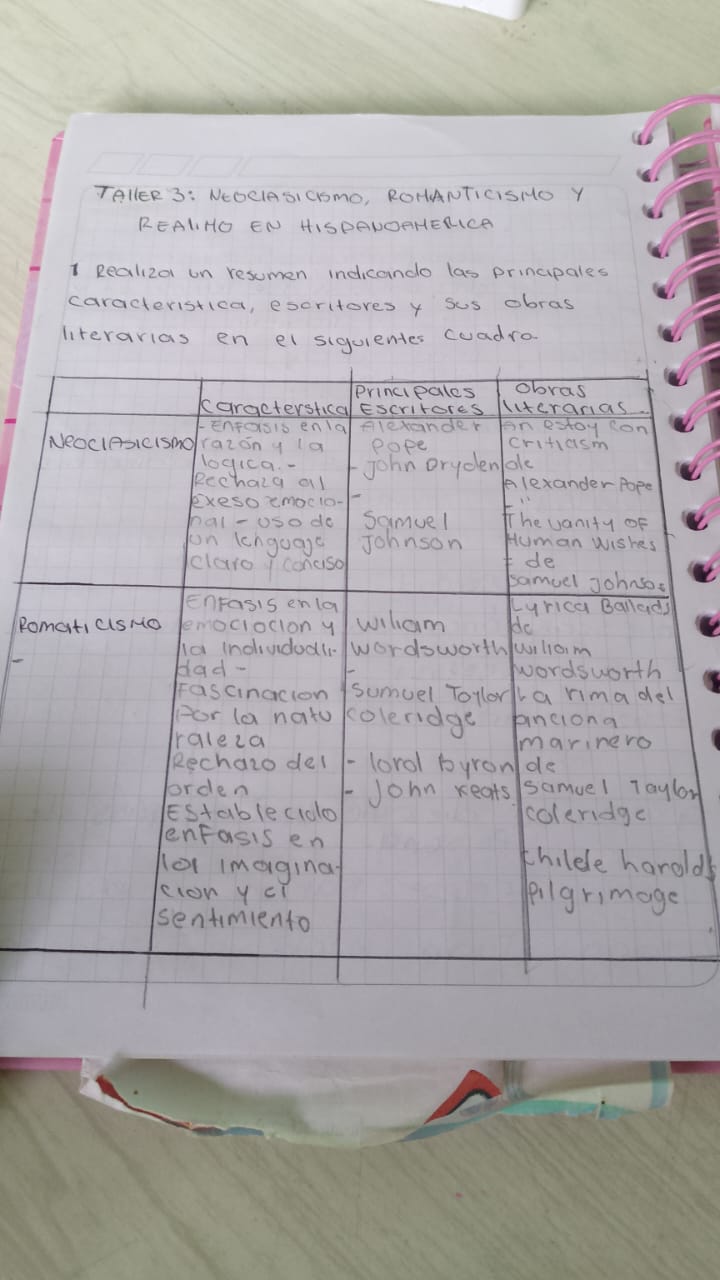 TALLER 3: NEOCLASICISMO, ROMANTICISMO Y
REALIMO EN HISPANOAMERICA
1 Realiza un resumen indicando las principales
caracteristica, escritores y sus obras
literarias en el siguientes cuadro.
caracterstica
Principales
Escritores
Obras
literarias
NEOCLASICISMO
- ENFASIS en la
razón y la
logica. -
Rechaza al
exeso emocio-
nal - uso de
un lenguage
claro y conciso
Alexander
Pope
- John Dryden
-
Samuel
Johnson
An estoy con
Criticism
de
Alexander Pope
- "
The vanity OF
Human Wishes
- de
Samuel Johnson
Romaticismo
-
ENFasis en la
emociocion y
la individuali-
dad -
Fascinacion
Por la natu
raleza
Rechazo del
orden
Establecido
enfasis en
la imagina-
cion y el
sentimiento
wiliam
wordsworth
-
Samuel Taylor
coleridge
- lord byron
- John Keats
Lyrica Ballads
de
wiliaim
wordsworth
La rima del
anciona
marinero
de
Samuel Taylor
coleridge
childe harolds
pilgrimage